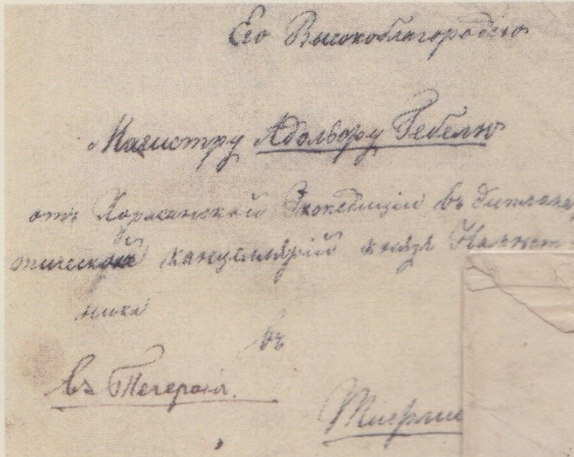 Его Высокоблагородію
Магистру Адольфу Гебелю
отъ Хорасанской Экспедиціи въ диплома
тической канцелярій князя Намѣст
ника
въ
въ Тегеранъ.